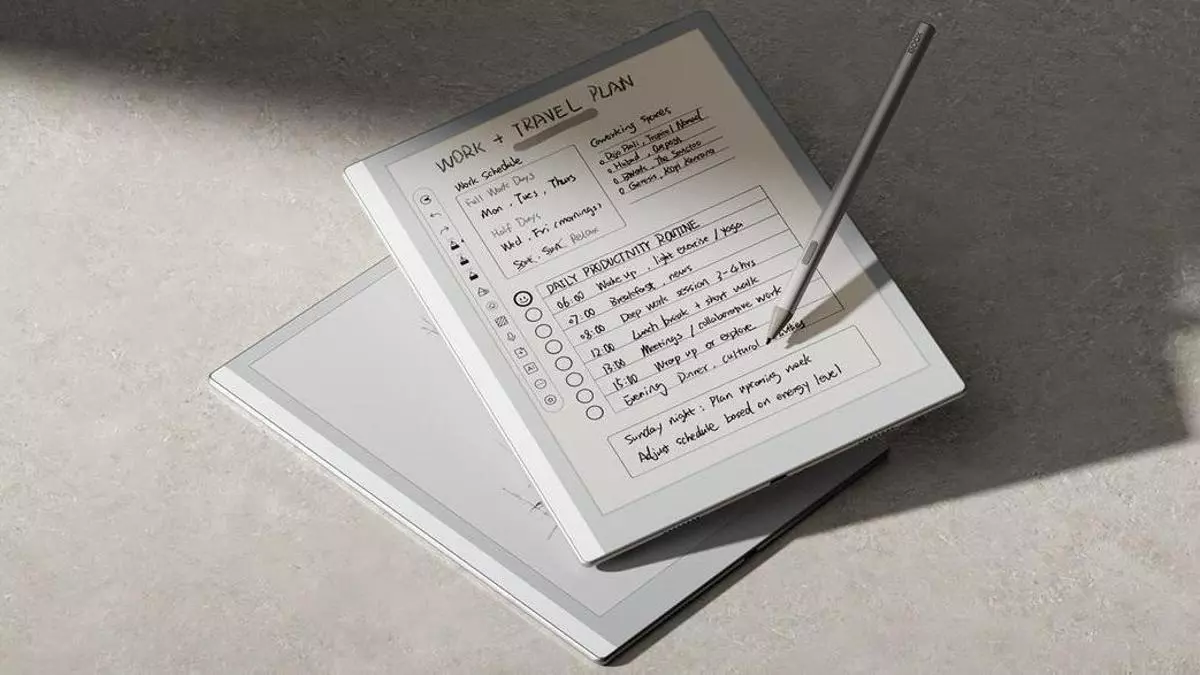 WORK + TRAVEL PLAN
Work Schedule
Full Work Days
Mon, Tues, Thurs
Half Days
Wed, Fri (mornings)
Sat, Sun Relax
Coworking Spaces
Dojo Bali, Tropical Nomad
Hubud, Outpost
Biliards, The Sanctoo
Genesis, Kopi
DAILY PRODUCTIVITY ROUTINE
06:00 Wake up, light exercise / yoga
07:00 Breakfast, news
08:00 Deep work session 3-4 hrs
12:00 Lunch break + short walk
13:00 Meetings / collaborative work
15:00 Wrap up or explore
Evening Dinner, cultural
Sunday night: Plan upcoming week
Adjust schedule based on energy level
BOOX